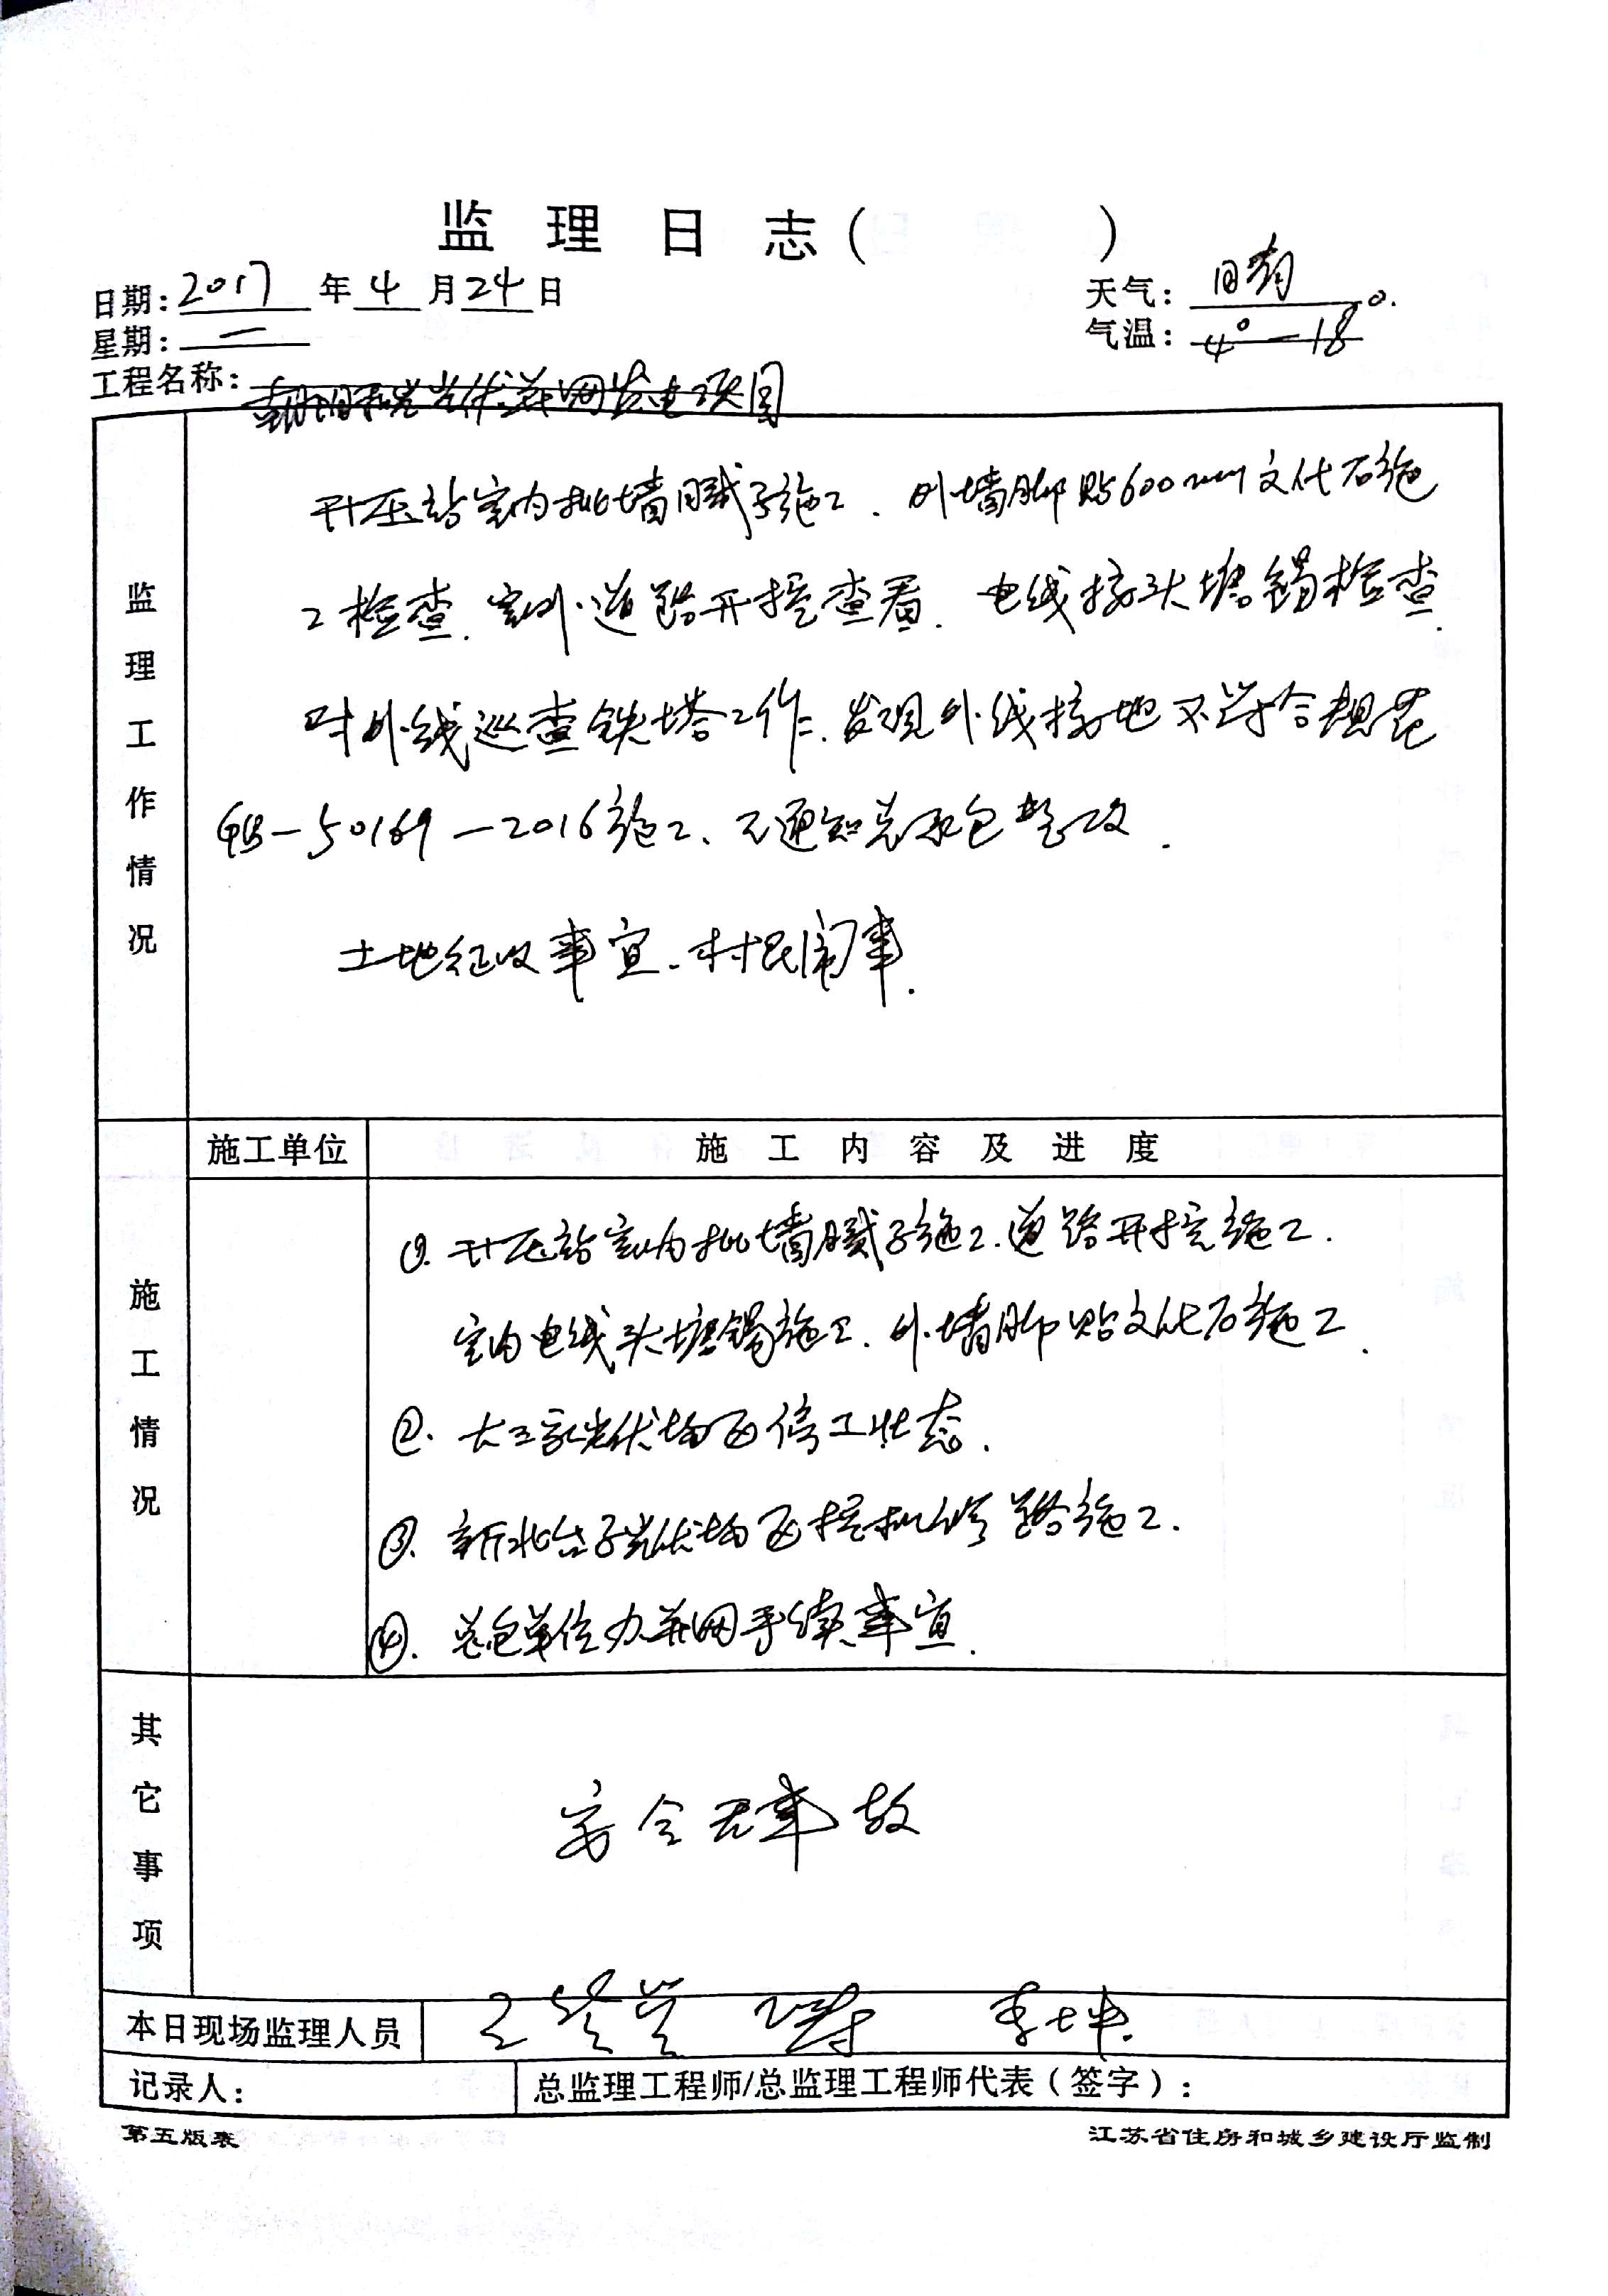 监理日志（　　）
日期：2017年4月24日
天气：晴
星期：一
气温：4°—18°.
工程名称：朝阳和光光伏并网发电项目
监理工作情况
升压站室内批墙腻子施工、外墙脚贴600mm文化石施
工检查、室外道路开挖查看、电线接头搪锡检查、
对外线巡查铁塔工作、发现外线接地不符合规范
GB-50169-2016施工、已通知总承包整改.
土地征收事宜、村民闹事.
施工单位 施工内容及进度
施工情况
①. 升压站室内批墙腻子施工.道路开挖施工.
室内电线头搪锡施工、外墙脚贴文化石施工.
②. 大三家光伏场区停工状态.
③. 新北台子光伏场区挖机修路施工.
④. 总包单位办并网手续事宜.
其它事项
安全无事故
本日现场监理人员 王 李坤
记录人： 总监理工程师/总监理工程师代表（签字）：
第五版表 江苏省住房和城乡建设厅监制